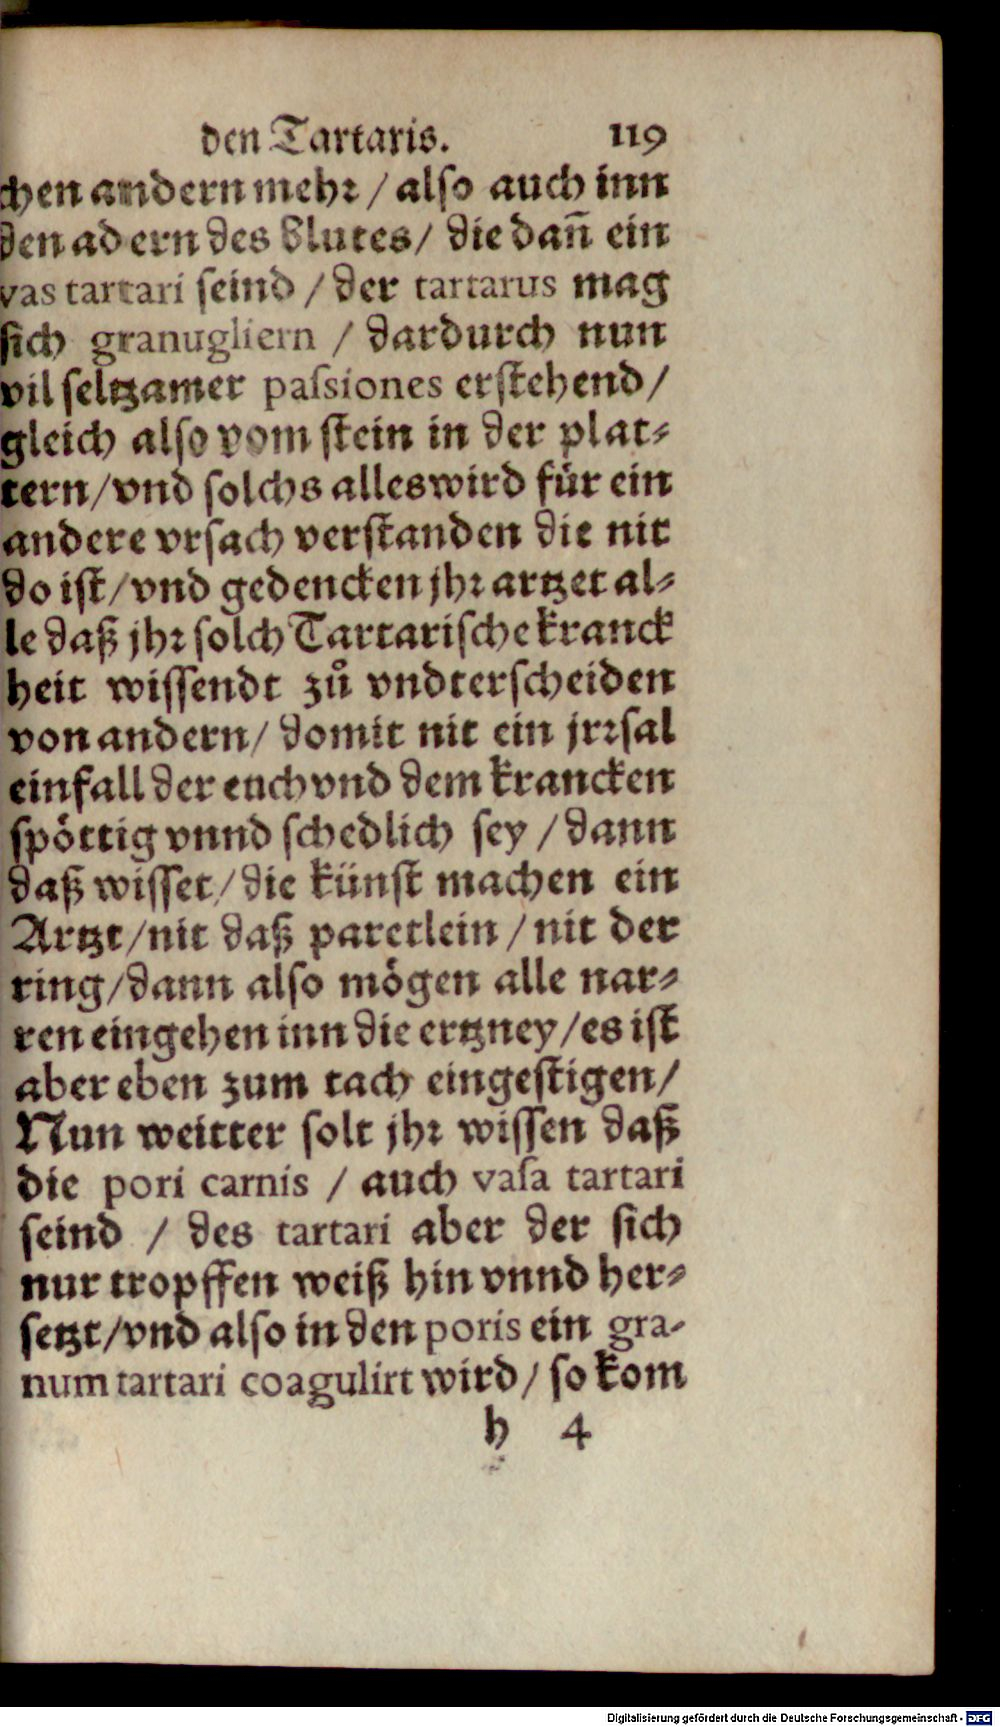 den Tartaris. 119
chen andern mehr / also auch inn
den adern des Blutes / die dañ ein
vas tartari seind / der tartarus mag
sich granugliern / dardurch nun
vil seltzamer passiones erstehend /
gleich also vom stein in der plat-
tern / vnd solchs alles wird für ein
andere vrsach verstanden die nit
do ist / vnd gedencken jhr artzet al-
le daß jhr solch Tartarische kranck
heit wissendt zů vndterscheiden
von andern / domit nit ein jrrsal
einfall der euch vnd dem krancken
spöttig vnnd schedlich sey / dann
daß wisset / die künst machen ein
Artzt / nit daß paretlein / nit der
ring / dann also mögen alle nar-
ren eingehen inn die ertzney / es ist
aber eben zum tach eingestigen /
Nun weitter solt jhr wissen daß
die pori carnis / auch vasa tartari
seind / des tartari aber der sich
nur tropffen weiß hin vnnd her-
setzt / vnd also in den poris ein gra-
num tartari coagulirt wird / so kom
h 4
Digitalisierung gefördert durch die Deutsche Forschungsgemeinschaft - DFG